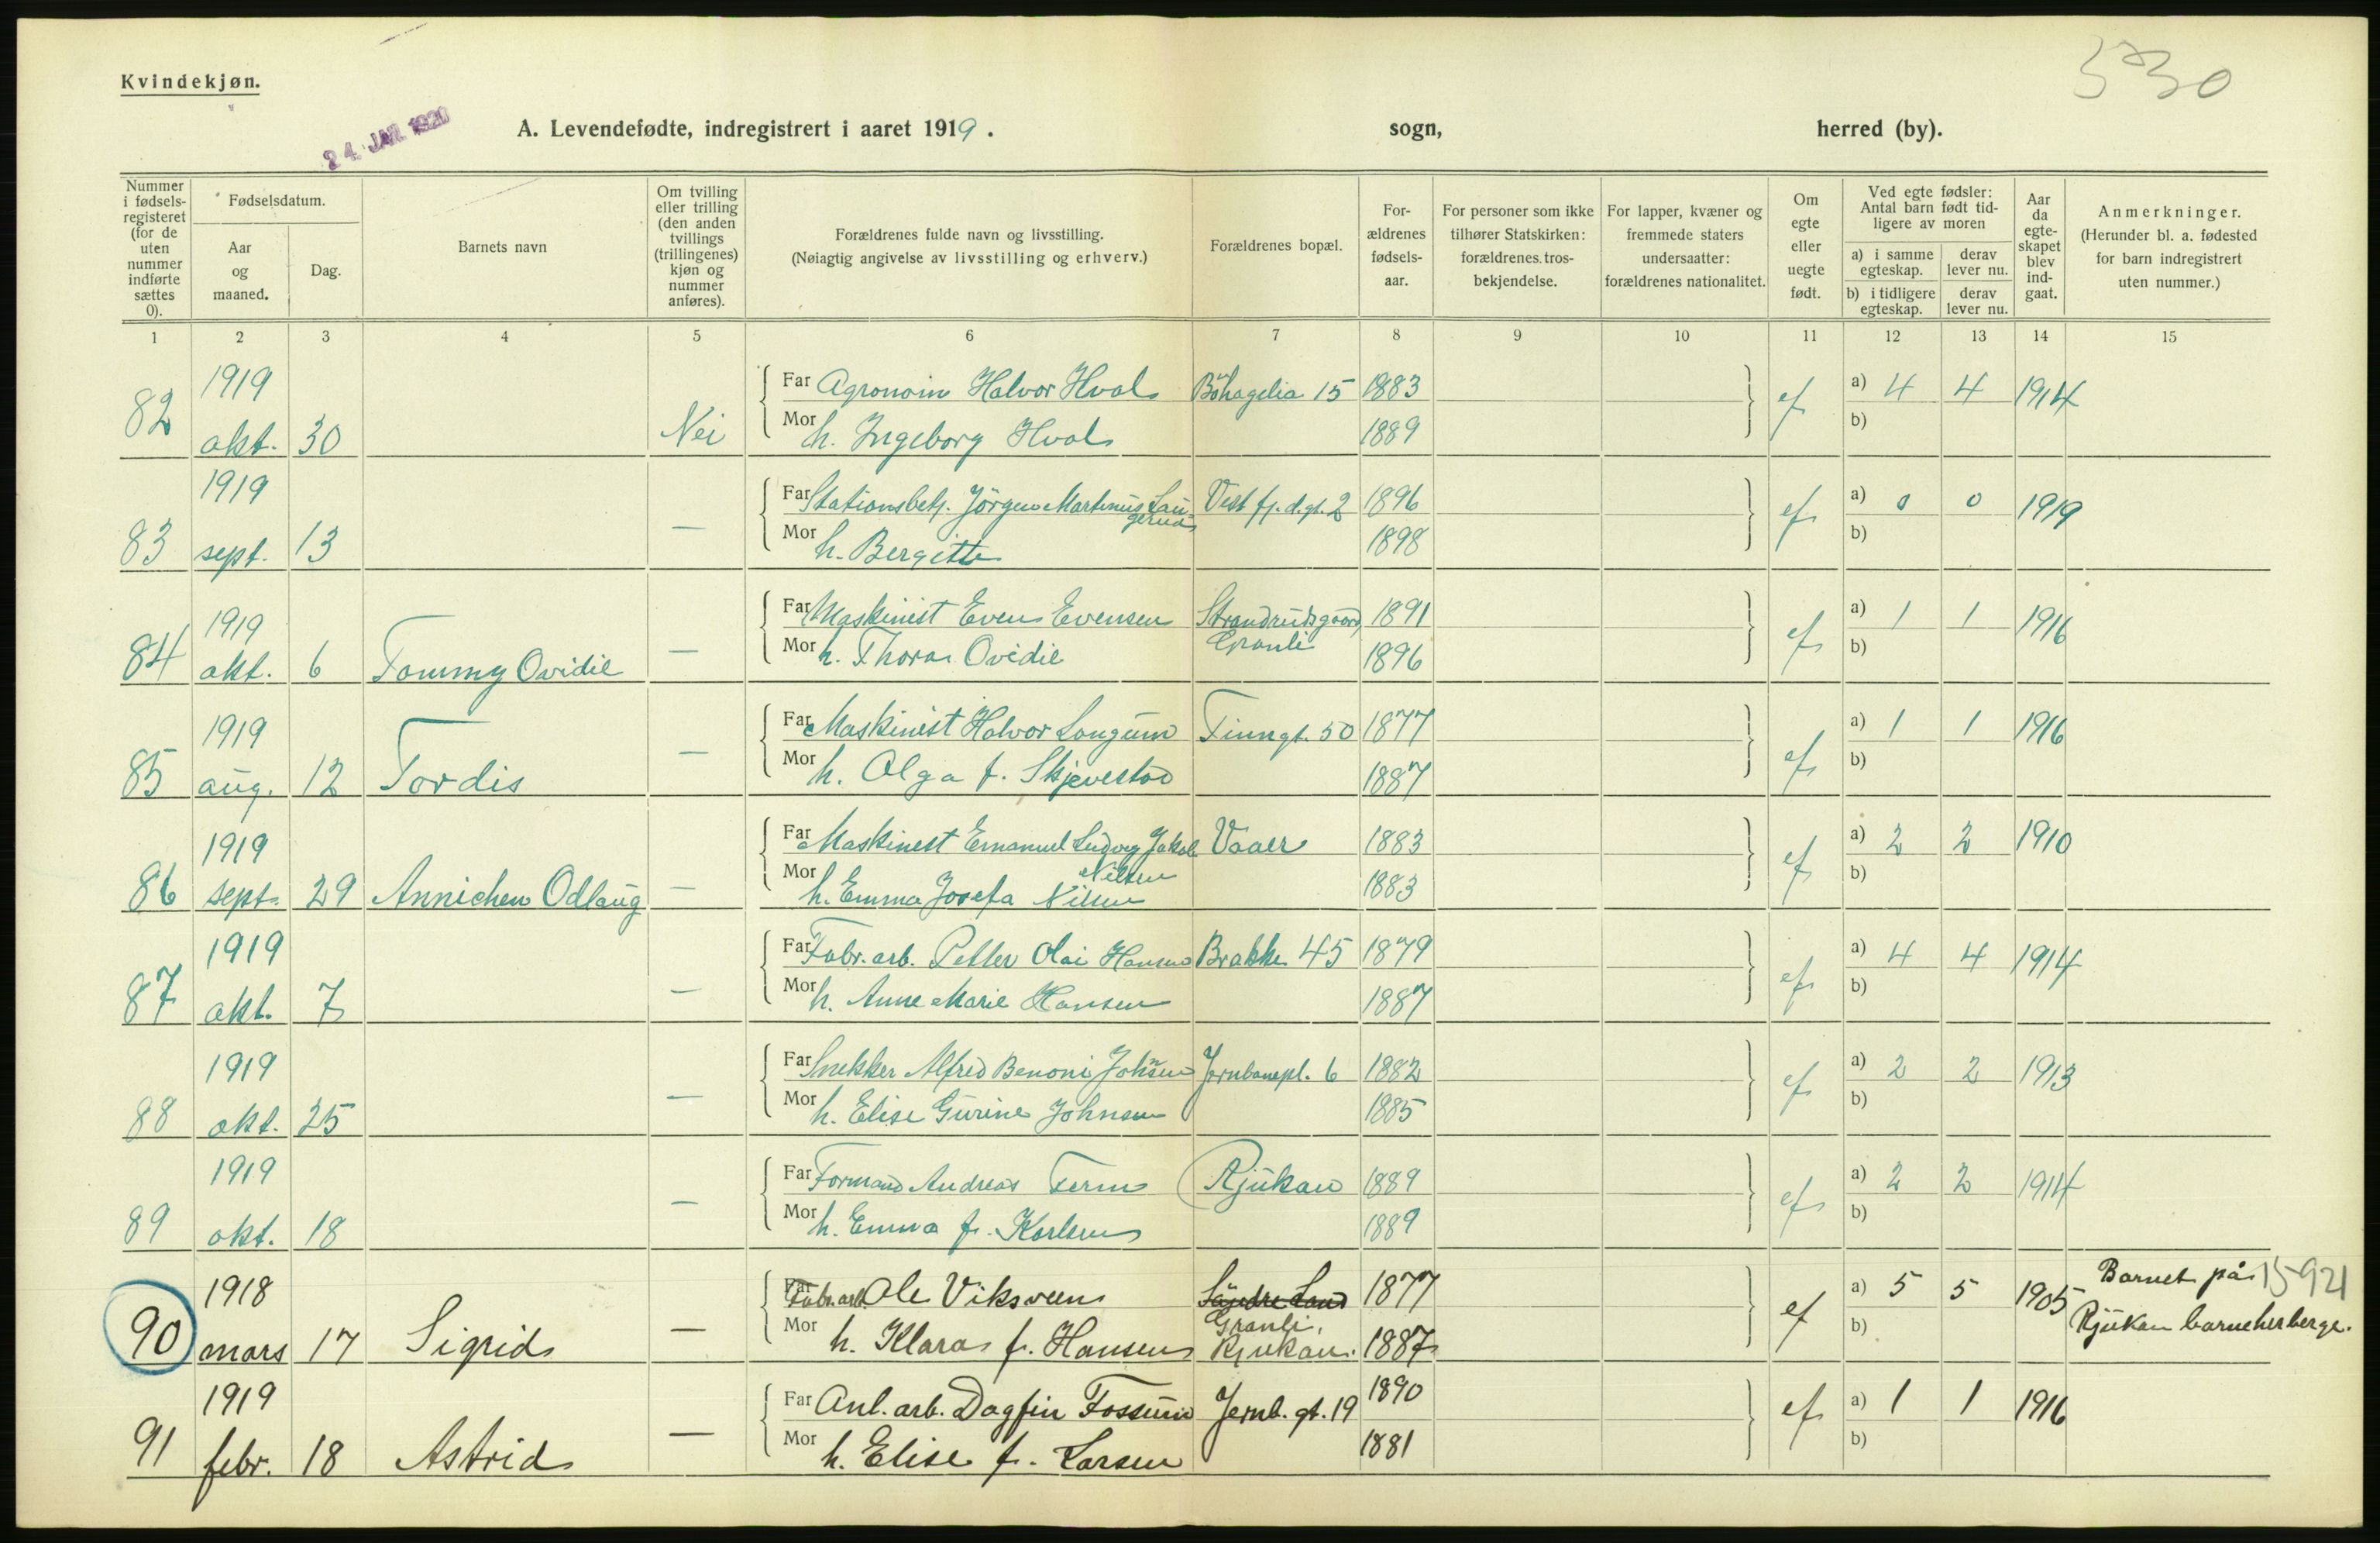 Kvindekjøn.
530
24. JAN. 1920
A. Levendefødte, indregistrert i aaret 1919. sogn, herred (by).
Nummer i fødsels-registeret (for de uten nummer indførte sættes 0).
Fødselsdatum.
Aar og maaned.
Dag.
Barnets navn
Om tvilling eller trilling (den anden tvillings (trillingenes) kjøn og nummer anføres).
Forældrenes fulde navn og livsstilling.
(Nøiagtig angivelse av livsstilling og erhverv.)
Forældrenes bopæl.
For-ældrenes fødsels-aar.
For personer som ikke tilhører Statskirken: forældrenes tros-bekjendelse.
For lapper, kvæner og fremmede staters undersaatter: forældrenes nationalitet.
Om egte eller uegte født.
Ved egte fødsler: Antal barn født tid-ligere av moren
a) i samme egteskap.
derav lever nu.
b) i tidligere egteskap.
derav lever nu.
Aar da egte-skapet blev ind-gaat.
Anmerkninger.
(Herunder bl. a. fødested for barn indregistrert uten nummer.)
1 2 3 4 5 6 7 8 9 10 11 12 13 14 15
1919 Far Agronom Halvor Hval Böhagelia 15 1883 a) 4 4 1914
82 okt. 30 Nei Mor h. Ingeborg Hval 1889 ef b)
1919 Far Stationsbetj. Jörgen Martinus Lau- Vestfj.d.gt. 2 1896 a) 0 0 1919
gerud
83 sept. 13 — Mor h. Bergitte 1898 ef b)
1919 Far Maskinist Even Evensen Strandrudsgaard, 1891 a) 1 1 1916
84 okt. 6 Tommy Ovidie — Mor h. Thora Ovidie Granli 1896 ef b)
1919 Far Maskinist Halvor Langum Tinngt. 50 1877 a) 1 1 1916
85 aug. 12 Tordis — Mor h. Olga f. Skjevestad 1887 ef b)
1919 Far Maskinist Emanuel Ludvig Jakob Vaaer 1883 a) 2 2 1910
Nilsen
86 sept. 29 Annichen Odlaug — Mor h. Emma Josefa Nilsen 1883 ef b)
1919 Far Fabr. arb. Petter Olai Hansen Brakke 45 1879 a) 4 4 1914
87 okt. 7 — Mor h. Anne Marie Hansen 1887 ef b)
1919 Far Snekker Alfred Benoni Johnsen Jernbanepl. 6 1882 a) 2 2 1913
88 okt. 25 — Mor h. Elise Gurine Johnsen 1885 ef b)
1919 Far Formand Andreas Ferm Rjukan 1889 a) 2 2 1914
89 okt. 18 — Mor h. Emma f. Karlsen 1889 ef b)
1918 Far Fabr. arb. Ole Viksveen Söndre Land 1877 a) 5 5 1905 Barnet på 15921
Granli,
90 mars 17 Sigrid — Mor h. Klara f. Hansen Rjukan. 1887 ef b) Rjukan barneherberge.
1919 Far Anl. arb. Dagfin Fossum Jernb. gt. 19 1890 a) 1 1 1916
91 febr. 18 Astrid — Mor h. Elise f. Larsen 1881 ef b)